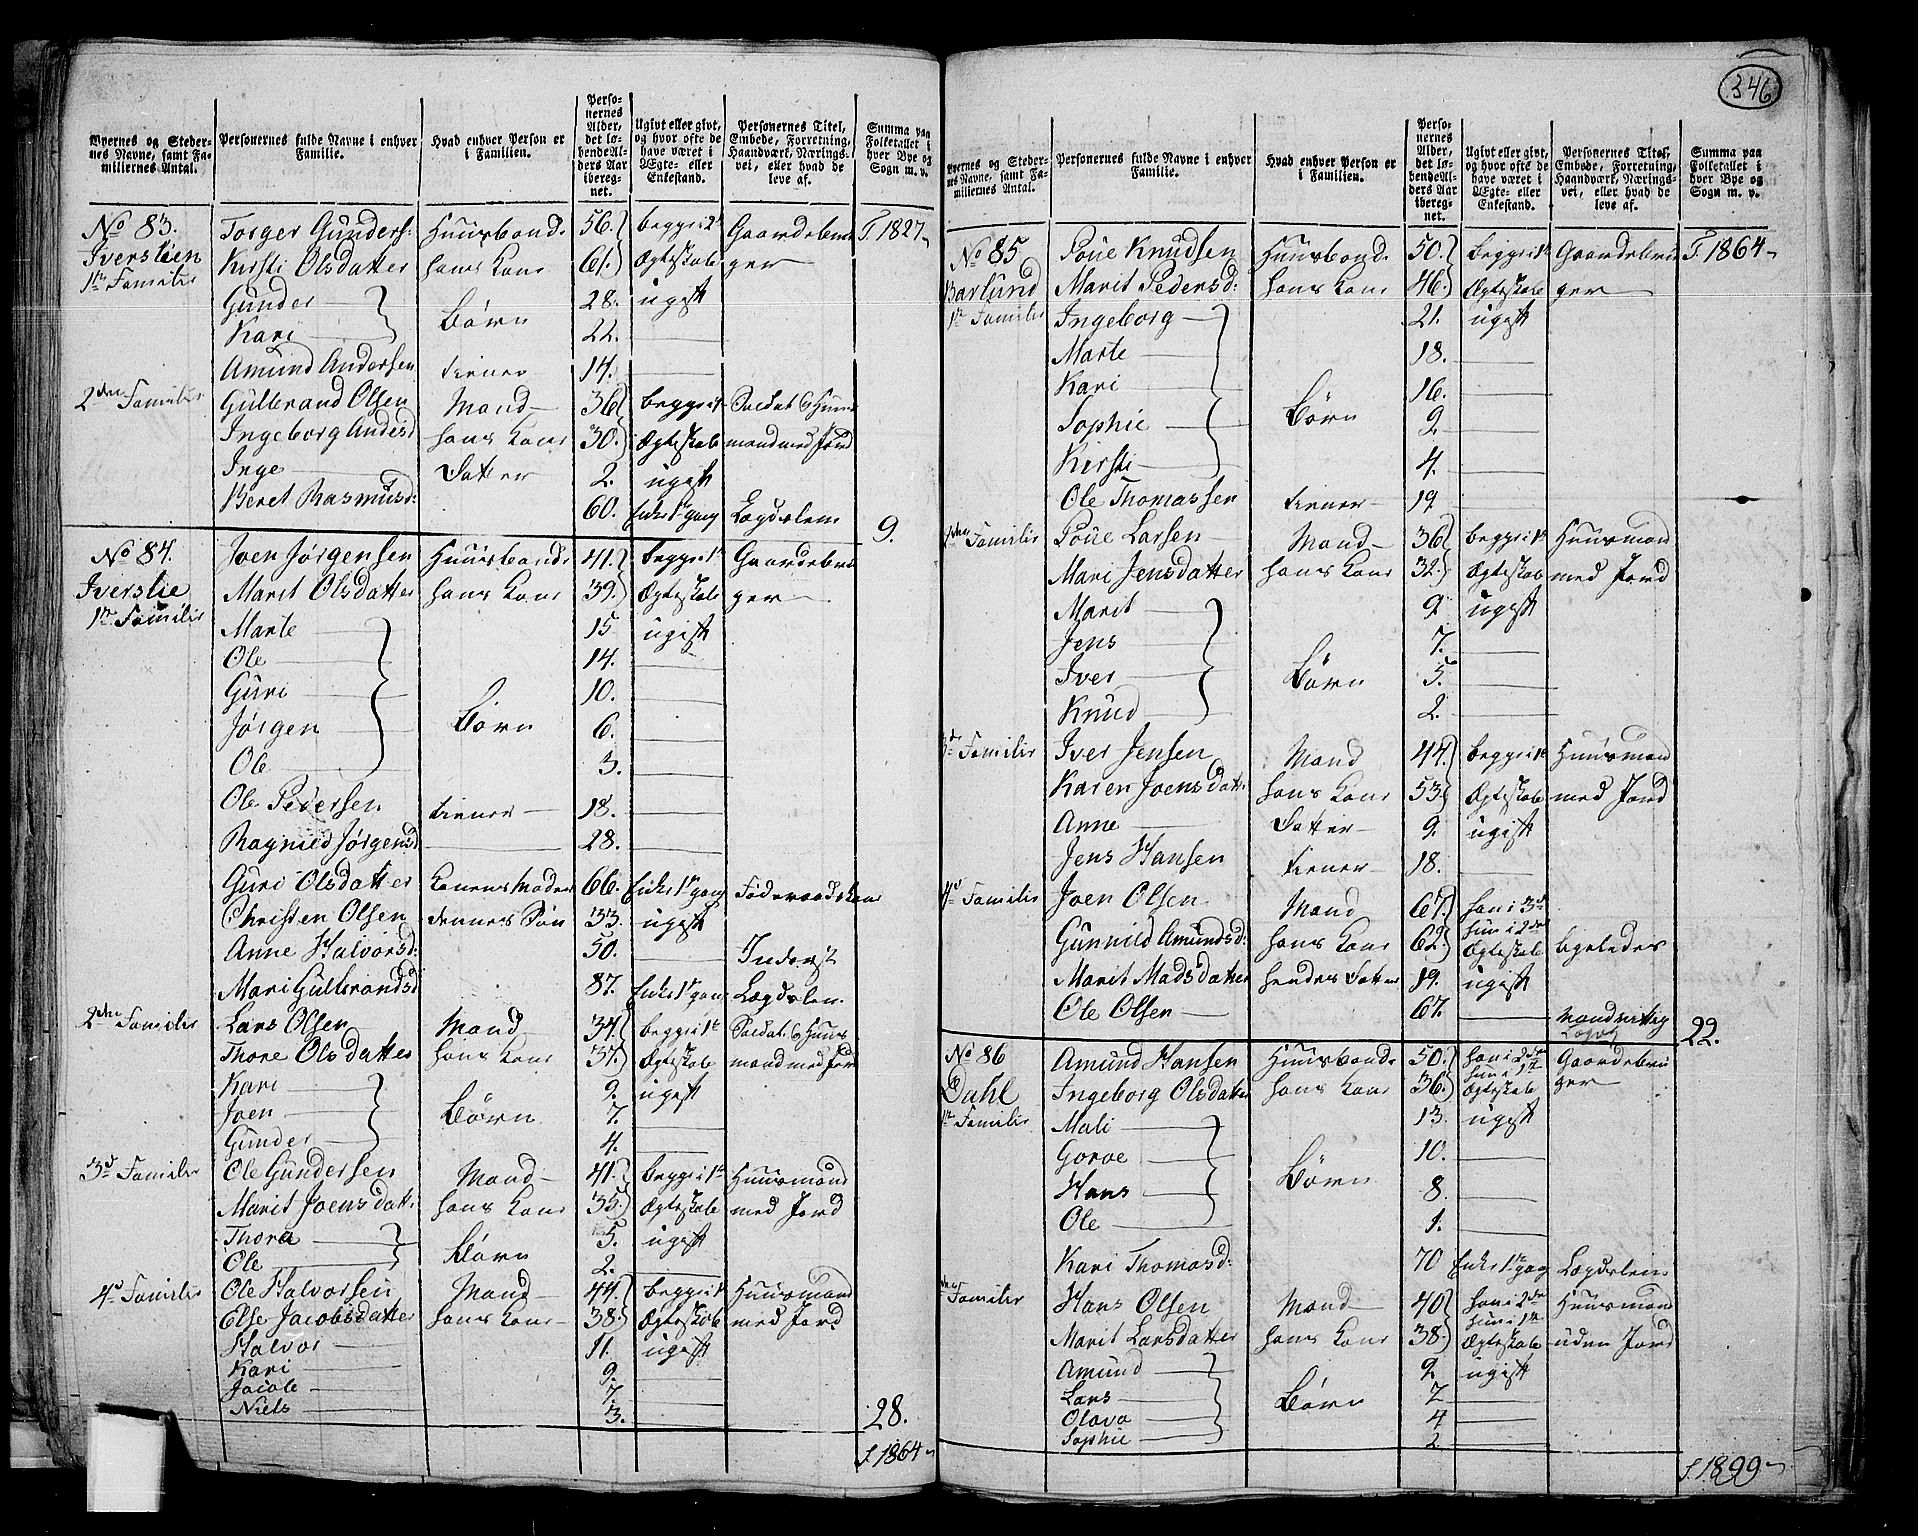 346
Byernes og Stedernes Navne, samt Familiernes Antal.
Personernes fulde Navne i enhver Familie.
Hvad enhver Person er i Familien.
Personernes Alder, det løbende Alders Aar iberegnet.
Ugivt eller givt, og hvor ofte de have været i Ægte- eller Enkestand.
Personernes Titel, Embede, Forretning, Haandværk, Næringsvei, eller hvad de leve af.
Summa paa Folketallet i hver Bye og Sogn m. v.
No 83. Torger Gunders: Huusbonde 56. begge i 2 Gaardebru T. 1827
Iverslien Kirsti Olsdatter hans Kone 61. Ægteskab ger
1te Familie Gunder 28. ugift
Kari Børn 22.
Amund Andersen tiener 14.
2den Familie Gulbrand Olsen Mand 36 begge i 1 Soldat og Huus
Ingeborg Andersd hans Kone 30. Ægteskab mand med Jord
Inge Datter 2. ugift
Beret Rasmusd: 60. Enke 1 gang Lægdslem 9.
No 84. Joen Jørgensen Huusbonde 41. begge i 1t Gaardebru
Iverslie Marit Olsdatter hans Kone 39. Ægteskab ger
1te Familie Marte 15 ugift
Ole 14.
Guri 10.
Jørgen Børn 6.
Ole 3.
Ole Pedersen tiener 18.
Ragnild Jørgensd 28.
Guri Olsdatter Konens Moder 66. Enke 1 gang Føderaadskone
Christen Olsen dennes Søn 33. ugift
Anne Halvorsd: 50. Inderst
Mari Gulbrandsd 87. Enke 1 gang Lægdslem
2den Familie Lars Olsen Mand 34. begge i 1t Soldat og Huus
Thore Olsdatter hans Kone 37. Ægteskab mand med Jord
Kari 9. ugift
Joen Børn 7.
Gunder 4.
3d Familie Ole Gundersen Mand 41. begge i 1t Huusmand
Marit Joensdatt: hans Kone 35. Ægteskab med Jord
Thora 5. ugift
Ole Børn 2.
4d Familie Ole Halvorsen Mand 44. begge i 1t Huusmand
Else Jacobsdatter hans Kone 38. Ægteskab med Jord
Halvor 11. ugift
Kari 9.
Jacob 7.
Niels 3. 28.
T. 1864
Byernes og Stedernes Navne, samt Familiernes Antal.
Personernes fulde Navne i enhver Familie.
Hvad enhver Person er i Familien.
Personernes Alder, det løbende Alders Aar iberegnet.
Ugivt eller givt, og hvor ofte de have været i Ægte- eller Enkestand.
Personernes Titel, Embede, Forretning, Haandværk, Næringsvei, eller hvad de leve af.
Summa paa Folketallet i hver Bye og Sogn m. v.
No 85 Poue Knudsen Huusbond 50. begge i 1t Gaardebru T. 1864
Barlund Marit Pedersd: hans Kone 46. Ægteskab ger
1te Familie Ingeborg 21. ugift
Marte 18.
Kari 16.
Sophie Børn 9.
Kirsti 4.
Ole Thomassen tiener 19
2den Familie Poue Larsen Mand 36 begge i 1t Huusmand
Mari Jensdatter hans Kone 32. Ægteskab med Jord
Marit 9 ugift
Jens 7.
Iver Børn 5.
Knud 2.
3d Familie Iver Jensen Mand 44. begge i 1t Huusmand
Karen Joensdatt: hans Kone 53. Ægteskab med Jord
Anne Datter 9. ugift
Jens Hansen tiener 18.
4d Familie Joen Olsen Mand 67. han i 3d
Gunnild Amundsd: hans Kone 62. hun i 2den Ægteskab ligeledes
Marit Madsdatter hendes Datter 19. ugift
Ole Olsen 67. 22.
No 86 Amund Hansen Huusbonde 50. han i 2den Gaardebru
Dahl Ingeborg Olsdatter hans Kone 36. hun i 1te Ægteskab ger
1te Familie Mali 13. ugift
Gorve 10.
Hans Børn 8.
Ole 1.
Kari Thomasd: 70 Enke 1te gag Lægdslem
2den Familie Hans Olsen Mand 40 han i 2den Huusmand
Marit Larsdatter hans Kone 38. hun i 1te Ægteskab uden Jord
Amund 9 ugift
Lars Børn 7
Olava 4
Sophie 2
T. 1899